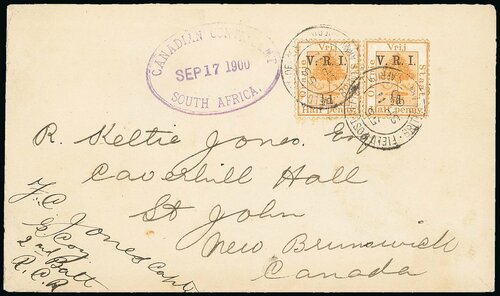 CANADIAN CONTINGENT
SEP 17 1900
SOUTH AFRICA.
Vrij
Oranje
Staat
V. R. I.
½d
Half penny
Vrij
Oranje
Staat
V. R. I.
½d
Half penny
FIELD POST
R. Keltie Jones, Esq
Caverhill Hall
St John
New Brunswick
Canada
F.C. Jones Capt
G Coy
2nd Batt
R.C.R